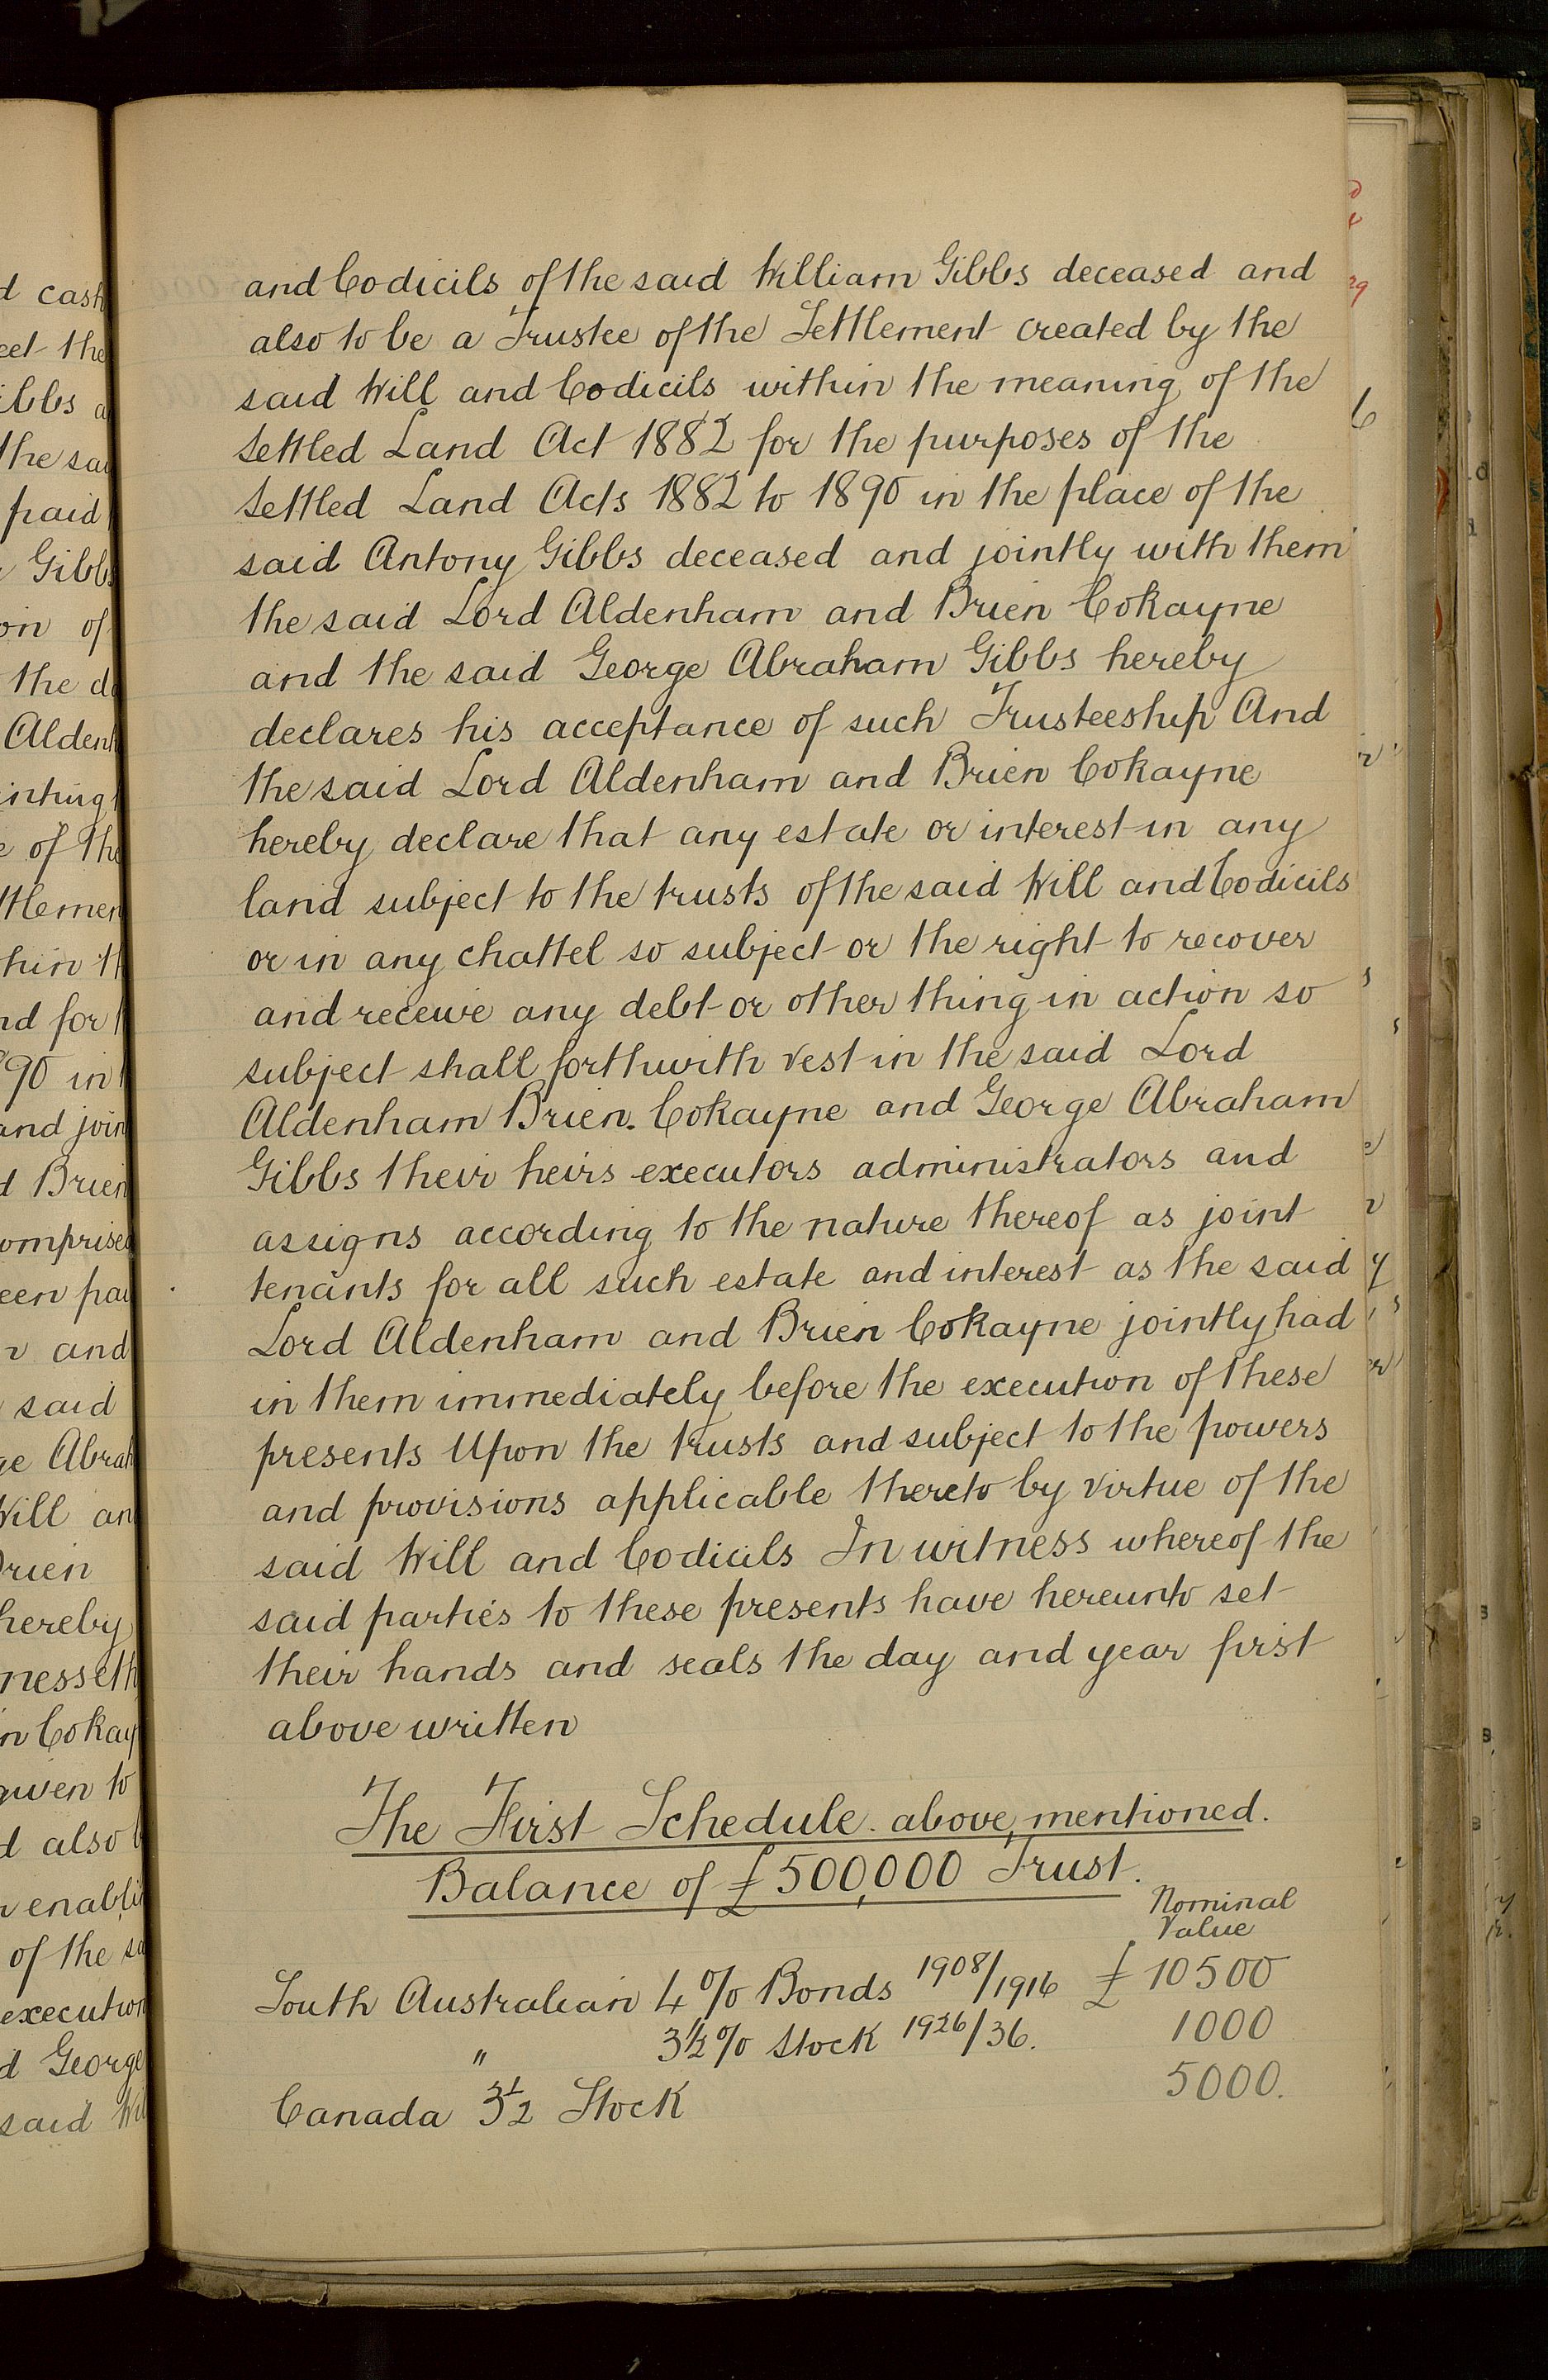 and Codicils of the said William Gibbs deceased and
also to be a Trustee of the Settlement created by the
said Will and Codicils within the meaning of the
Settled Land Act 1882 for the purposes of the
Settled Land Acts 1882 to 1890 in the place of the
said Antony Gibbs deceased and jointly with them
the said Lord Aldenham and Brien Cokayne
and the said George Abraham Gibbs hereby
declares his acceptance of such Trusteeship And
the said Lord Aldenham and Brien Cokayne
hereby declare that any estate or interest in any
land subject to the trusts of the said Will and Codicils
or in any chattel so subject or the right to recover
and receive any debt or other thing in action so
subject shall forthwith vest in the said Lord
Aldenham Brien Cokayne and George Abraham
Gibbs their heirs executors administrators and
assigns according to the nature thereof as joint
tenants for all such estate and interest as the said
Lord Aldenham and Brien Cokayne jointly had
in them immediately before the execution of these
presents Upon the trusts and subject to the powers
and provisions applicable thereto by virtue of the
said Will and Codicils In witness whereof the
said parties to these presents have hereunto set
their hands and seals the day and year first
above written
The First Schedule above mentioned.
Balance of £500,000 Trust.
Nominal
Value
South Australian 4% Bonds 1908/1916 £ 10500
" 3½% Stock 1926/36. 1000
Canada 3½ Stock 5000.